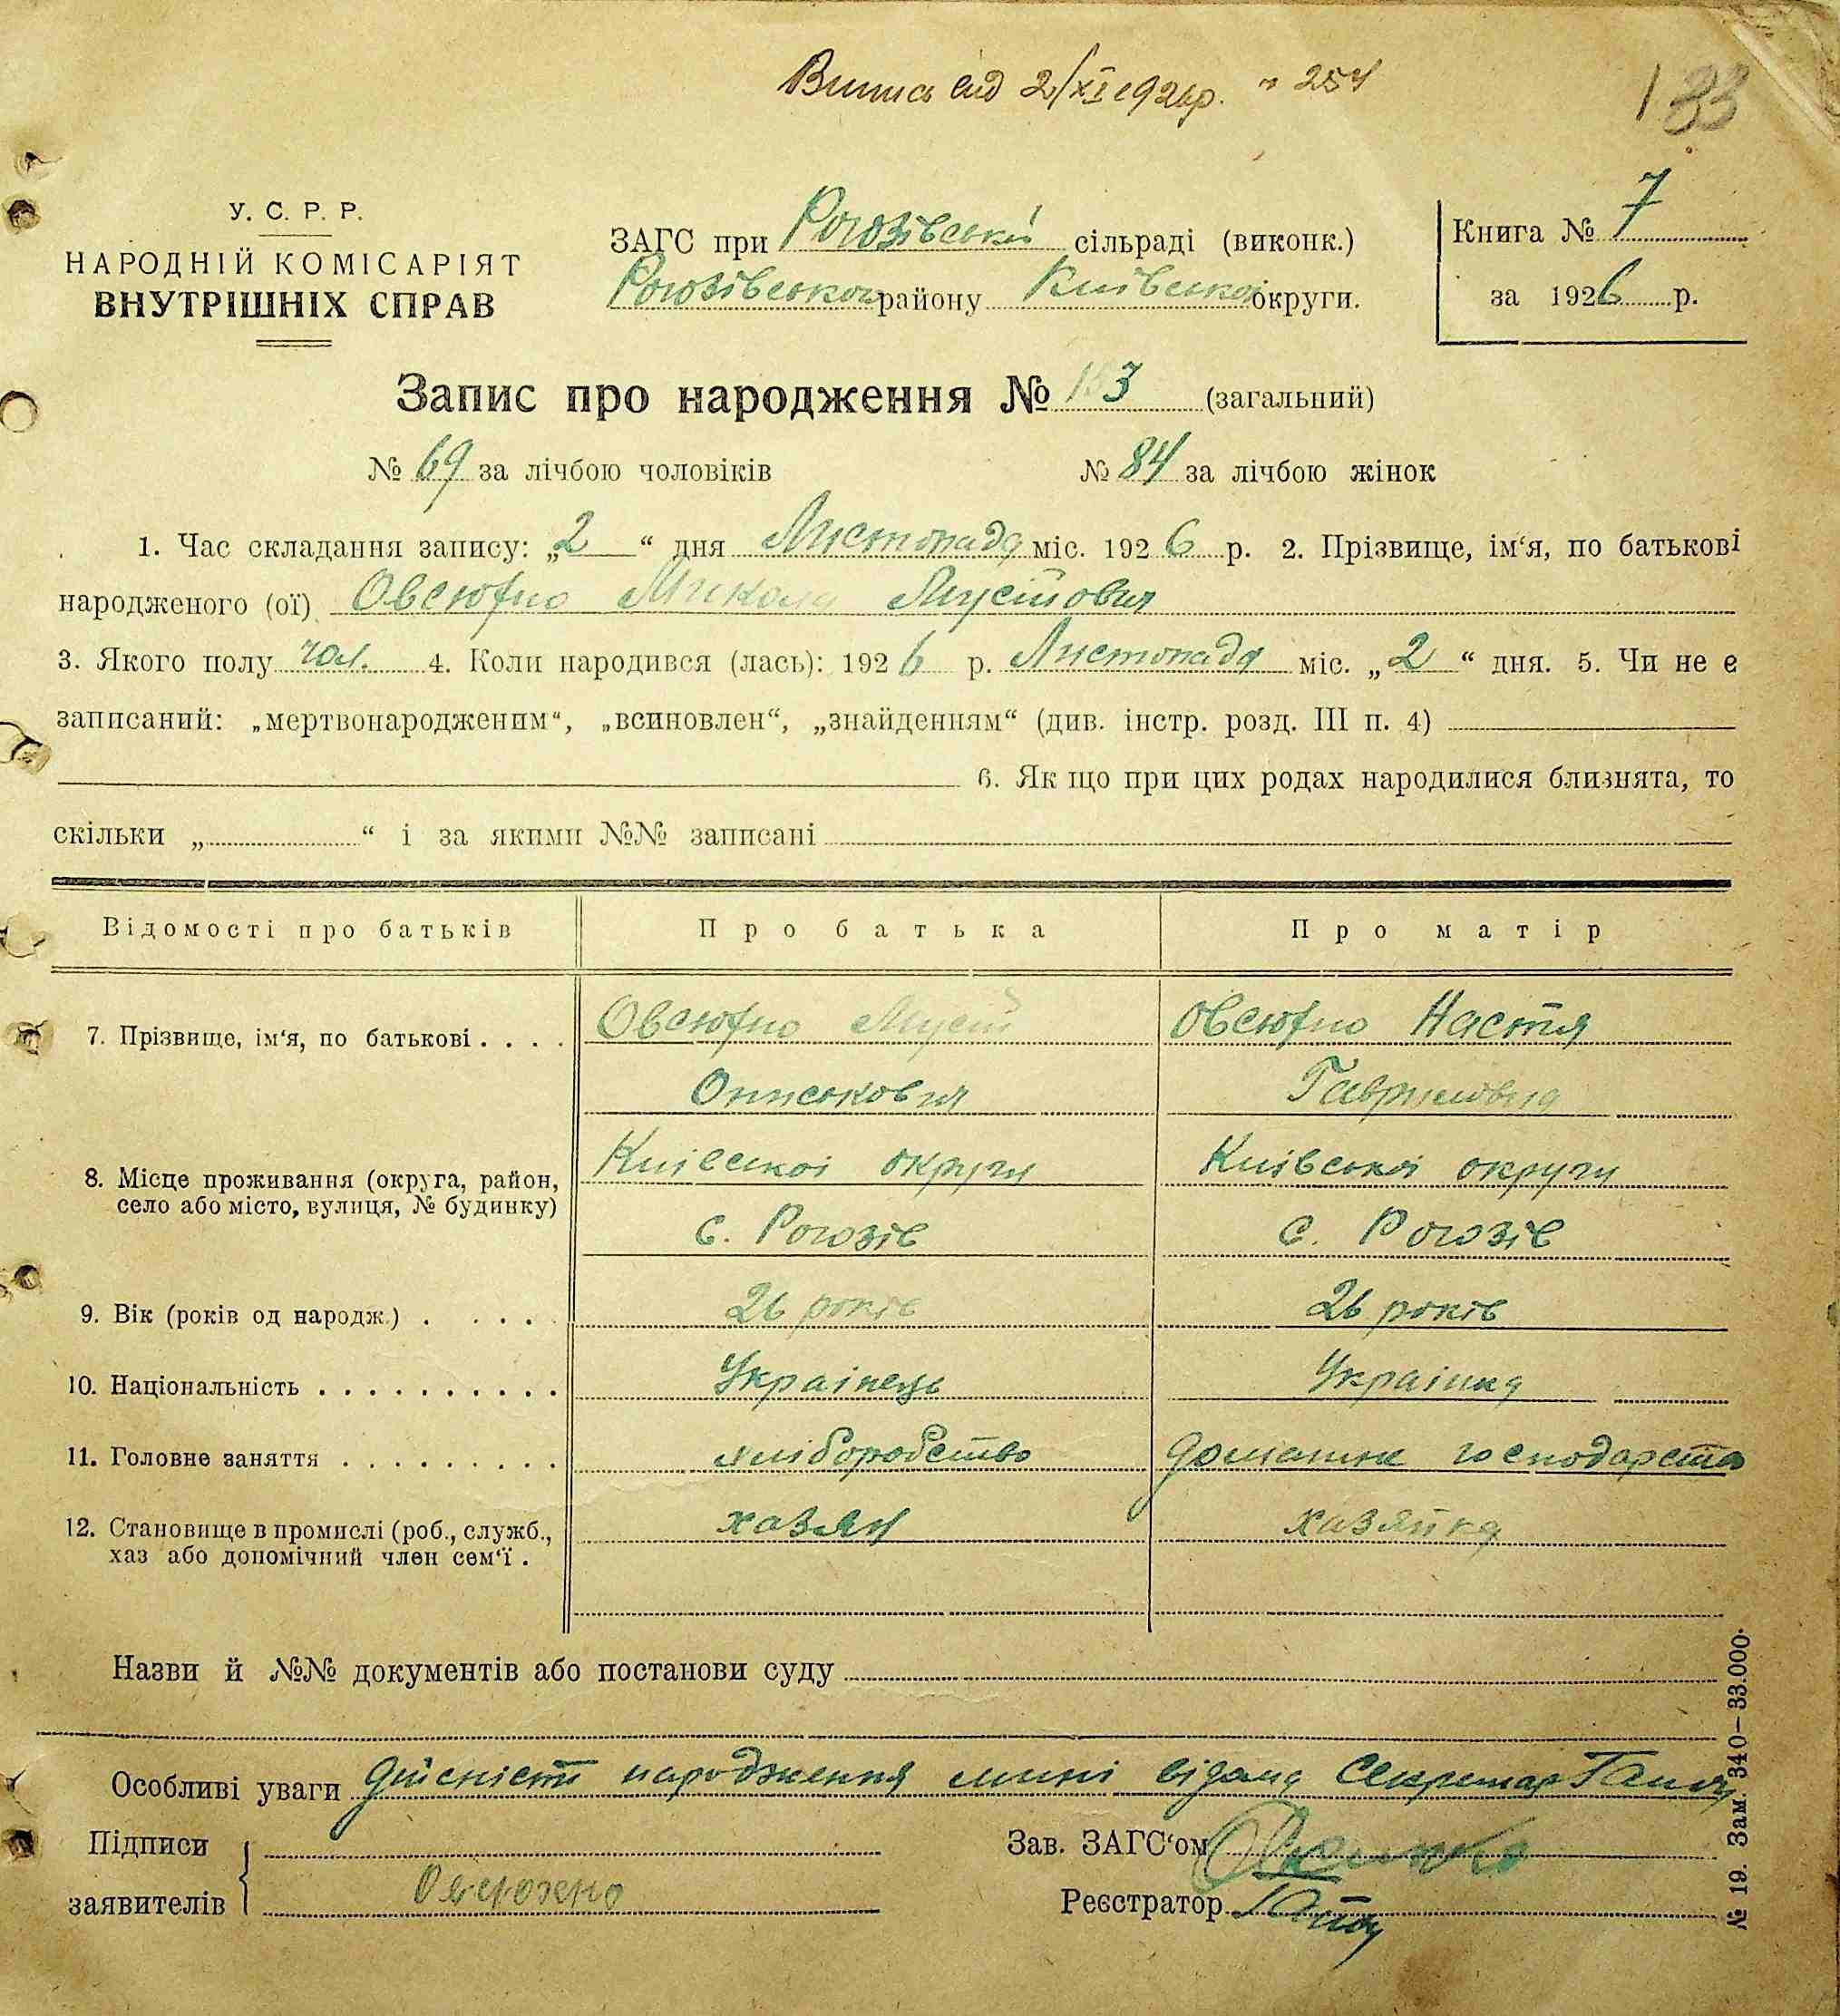 Випись від 2/XI 1926р. № 254
133
У. С. Р. Р.
НАРОДНІЙ КОМІСАРІЯТ
ВНУТРІШНІХ СПРАВ
ЗАГС при Рогозівській сільраді (виконк.)
Рогозівського району Київської округи.
Книга № 7
за 1926 р.
Запис про народження № 153 (загальний)
№ 69 за лічбою чоловіків № 84 за лічбою жінок
1. Час складання запису: „2“ дня Листопада міс. 1926 р. 2. Прізвище, ім‘я, по батькові
народженого (ої) Овсюфно Микола Мусійович
3. Якого полу чол. 4. Коли народився (лась): 1926 р. Листопада міс. „2“ дня. 5. Чи не е
записаний: „мертвонародженим“, „всиновлен“, „знайденням“ (див. інстр. розд. III п. 4)
6. Як що при цих родах народилися близнята, то
скільки „ “ і за якими №№ записані
Відомості про батьків Про батька Про матір
7. Прізвище, ім‘я, по батькові . . . . Овсюфно Мусій Овсюфно Настя
Ониськович Гавриловна
8. Місце проживання (округа, район, Київської округи Київської округи
село або місто, вулиця, № будинку) с. Рогозів с. Рогозів
9. Вік (років од народж.) . . . . . 26 років 26 років
10. Національність . . . . . . . . . . Українець Українка
11. Головне заняття . . . . . . . . . хліборобство домашнє господарство
12. Становище в промислі (роб., служб., хазяїн хазяйка
хаз або допомічний член сем‘ї .
Назви й №№ документів або постанови суду
Особливі уваги дійсність народження мині відома Секретар
Підписи
заявителів
Зав. ЗАГС‘ом
Реєстратор
№ 19. Зам. 340—33.000.